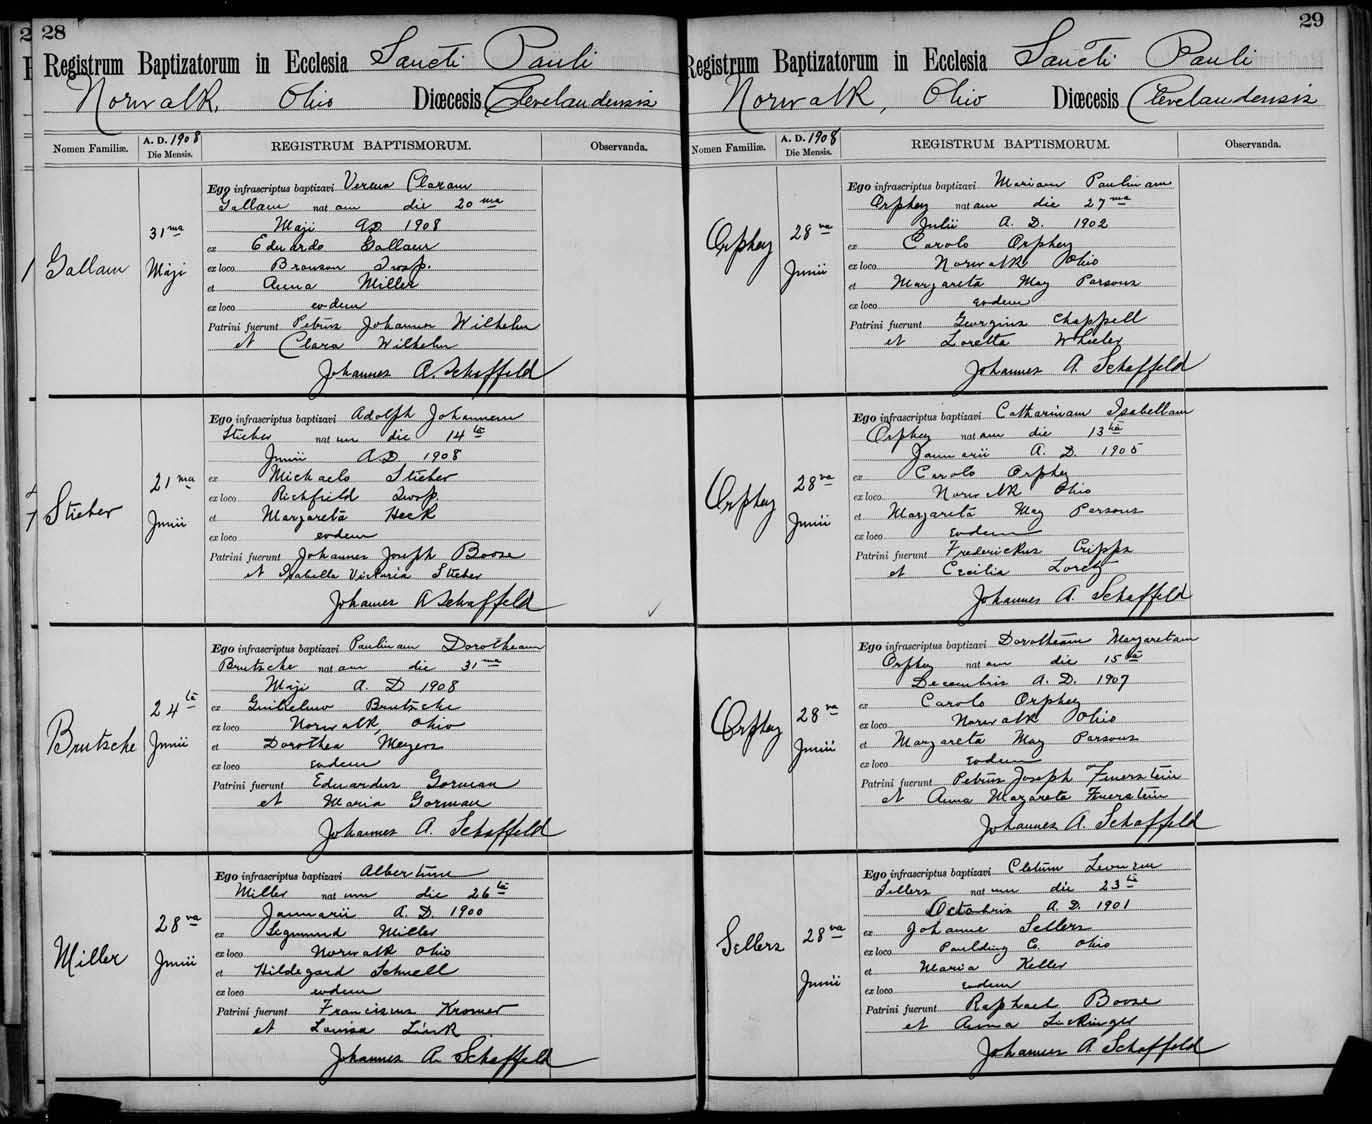 28
Registrum Baptizatorum in Ecclesia Sancti Pauli
Norwalk, Ohio Diœcesis Clevelandensis
Nomen Familiæ.
A. D. 1908
Die Mensis.
REGISTRUM BAPTISMORUM.
Observanda.
Gallam
31ma
Maji
Ego infrascriptus baptizavi Verna Claram
Gallam nat am die 20ma
Maji A.D. 1908
ex Eduardo Gallam
ex loco Bronson Twsp.
et Anna Miller
ex loco eodem
Patrini fuerunt Petrus Johannes Wilhelm
et Clara Wilhelm
Johannes A. Schaffeld
Stieber
21ma
Junii
Ego infrascriptus baptizavi Adolph Johannem
Stieber nat um die 14ta
Junii A.D. 1908
ex Michaele Stieber
ex loco Richfield Twsp.
et Margareta Heck
ex loco eodem
Patrini fuerunt Johannes Joseph Boose
et Isabella Victoria Stieber
Johannes A Schaffeld
Brutsche
24ta
Junii
Ego infrascriptus baptizavi Paulinam Dorotheam
Brutsche nat am die 31ma
Maji A. D. 1908
ex Guilielmo Brutsche
ex loco Norwalk, Ohio
et Dorothea Meyers
ex loco eodem
Patrini fuerunt Eduardus Gorman
et Maria Gorman
Johannes A. Schaffeld
Miller
28va
Junii
Ego infrascriptus baptizavi Albertum
Miller nat um die 26ta
Januarii A. D. 1900
ex Segmund Miller
ex loco Norwalk Ohio
et Hildegard Schnell
ex loco eodem
Patrini fuerunt Franciscus Kromer
et Louisa Link
Johannes A. Schaffeld
29
Registrum Baptizatorum in Ecclesia Sancti Pauli
Norwalk, Ohio Diœcesis Clevelandensis
Nomen Familiæ.
A. D. 1908
Die Mensis.
REGISTRUM BAPTISMORUM.
Observanda.
Orphey
28va
Junii
Ego infrascriptus baptizavi Mariam Paulinam
Orphey nat am die 27ma
Julii A. D. 1902
ex Carolo Orphey
ex loco Norwalk Ohio
et Margareta May Parsons
ex loco eodem
Patrini fuerunt Georgius Chappell
et Loretta Wheeler
Johannes A. Schaffeld
Orphey
28va
Junii
Ego infrascriptus baptizavi Catharinam Isabellam
Orphey nat am die 13tia
Januarii A. D. 1905
ex Carolo Orphey
ex loco Norwalk Ohio
et Margareta May Parsons
ex loco Eodem
Patrini fuerunt Frederickus Cripps
et Cecilia Loretz
Johannes A. Schaffeld
Orphey
28va
Junii
Ego infrascriptus baptizavi Dorotheam Margaretam
Orphey nat am die 15ta
Decembris A. D. 1907
ex Carolo Orphey
ex loco Norwalk Ohio
et Margareta May Parsons
ex loco Eodem
Patrini fuerunt Petrus Joseph Feuerstein
et Anna Margareta Feuerstein
Johannes A. Schaffeld
Sellers
28va
Junii
Ego infrascriptus baptizavi Cletum
Sellers nat um die 23ta
Octobris A. D. 1901
ex Johanne Sellers
ex loco Paulding Co. Ohio
et Maria Keller
ex loco eodem
Patrini fuerunt Raphael Boose
et Anna
Johannes A Schaffeld